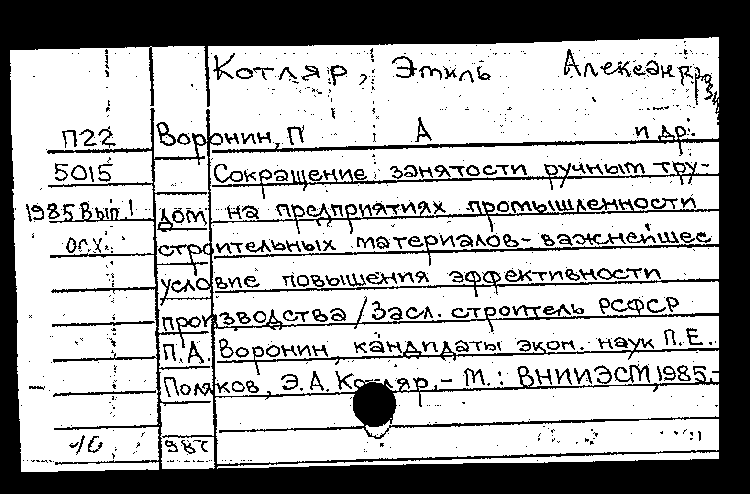 Котляр, Эмиль Александро
П22 Воронин, П А и др.
5015 Сокращение занятости ручным тру-
1985 Вып 1 дом на предприятиях промышленности
строительных материалов - важнейшее
условие повышения эффективности
производства / Засл. строитель РСФСР
П.А. Воронин, кандидаты экон. наук П.Е.
Поляков, Э.А. Котляр. - М.: ВНИИЭСМ, 1985. -